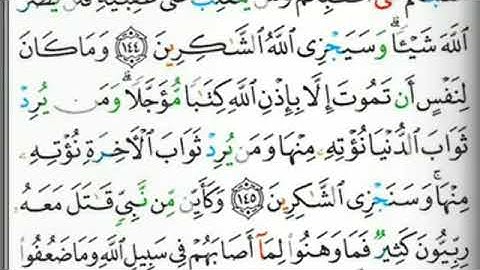 يَنقَلِبْ عَلَىٰ عَقِبَيْهِ فَلَن يَضُرَّ
ٱللَّهَ شَيْـًٔا ۗ وَسَيَجْزِى ٱللَّهُ ٱلشَّـٰكِرِينَ ١٤٤ وَمَا كَانَ
لِنَفْسٍ أَن تَمُوتَ إِلَّا بِإِذْنِ ٱللَّهِ كِتَـٰبًا مُّؤَجَّلًا ۗ وَمَن يُرِدْ
ثَوَابَ ٱلدُّنْيَا نُؤْتِهِۦ مِنْهَا وَمَن يُرِدْ ثَوَابَ ٱلْـَٔاخِرَةِ نُؤْتِهِۦ
مِنْهَا ۚ وَسَنَجْزِى ٱلشَّـٰكِرِينَ ١٤٥ وَكَأَيِّن مِّن نَّبِىٍّ قَـٰتَلَ مَعَهُۥ
رِبِّيُّونَ كَثِيرٌ فَمَا وَهَنُوا۟ لِمَآ أَصَابَهُمْ فِى سَبِيلِ ٱللَّهِ وَمَا ضَعُفُوا۟